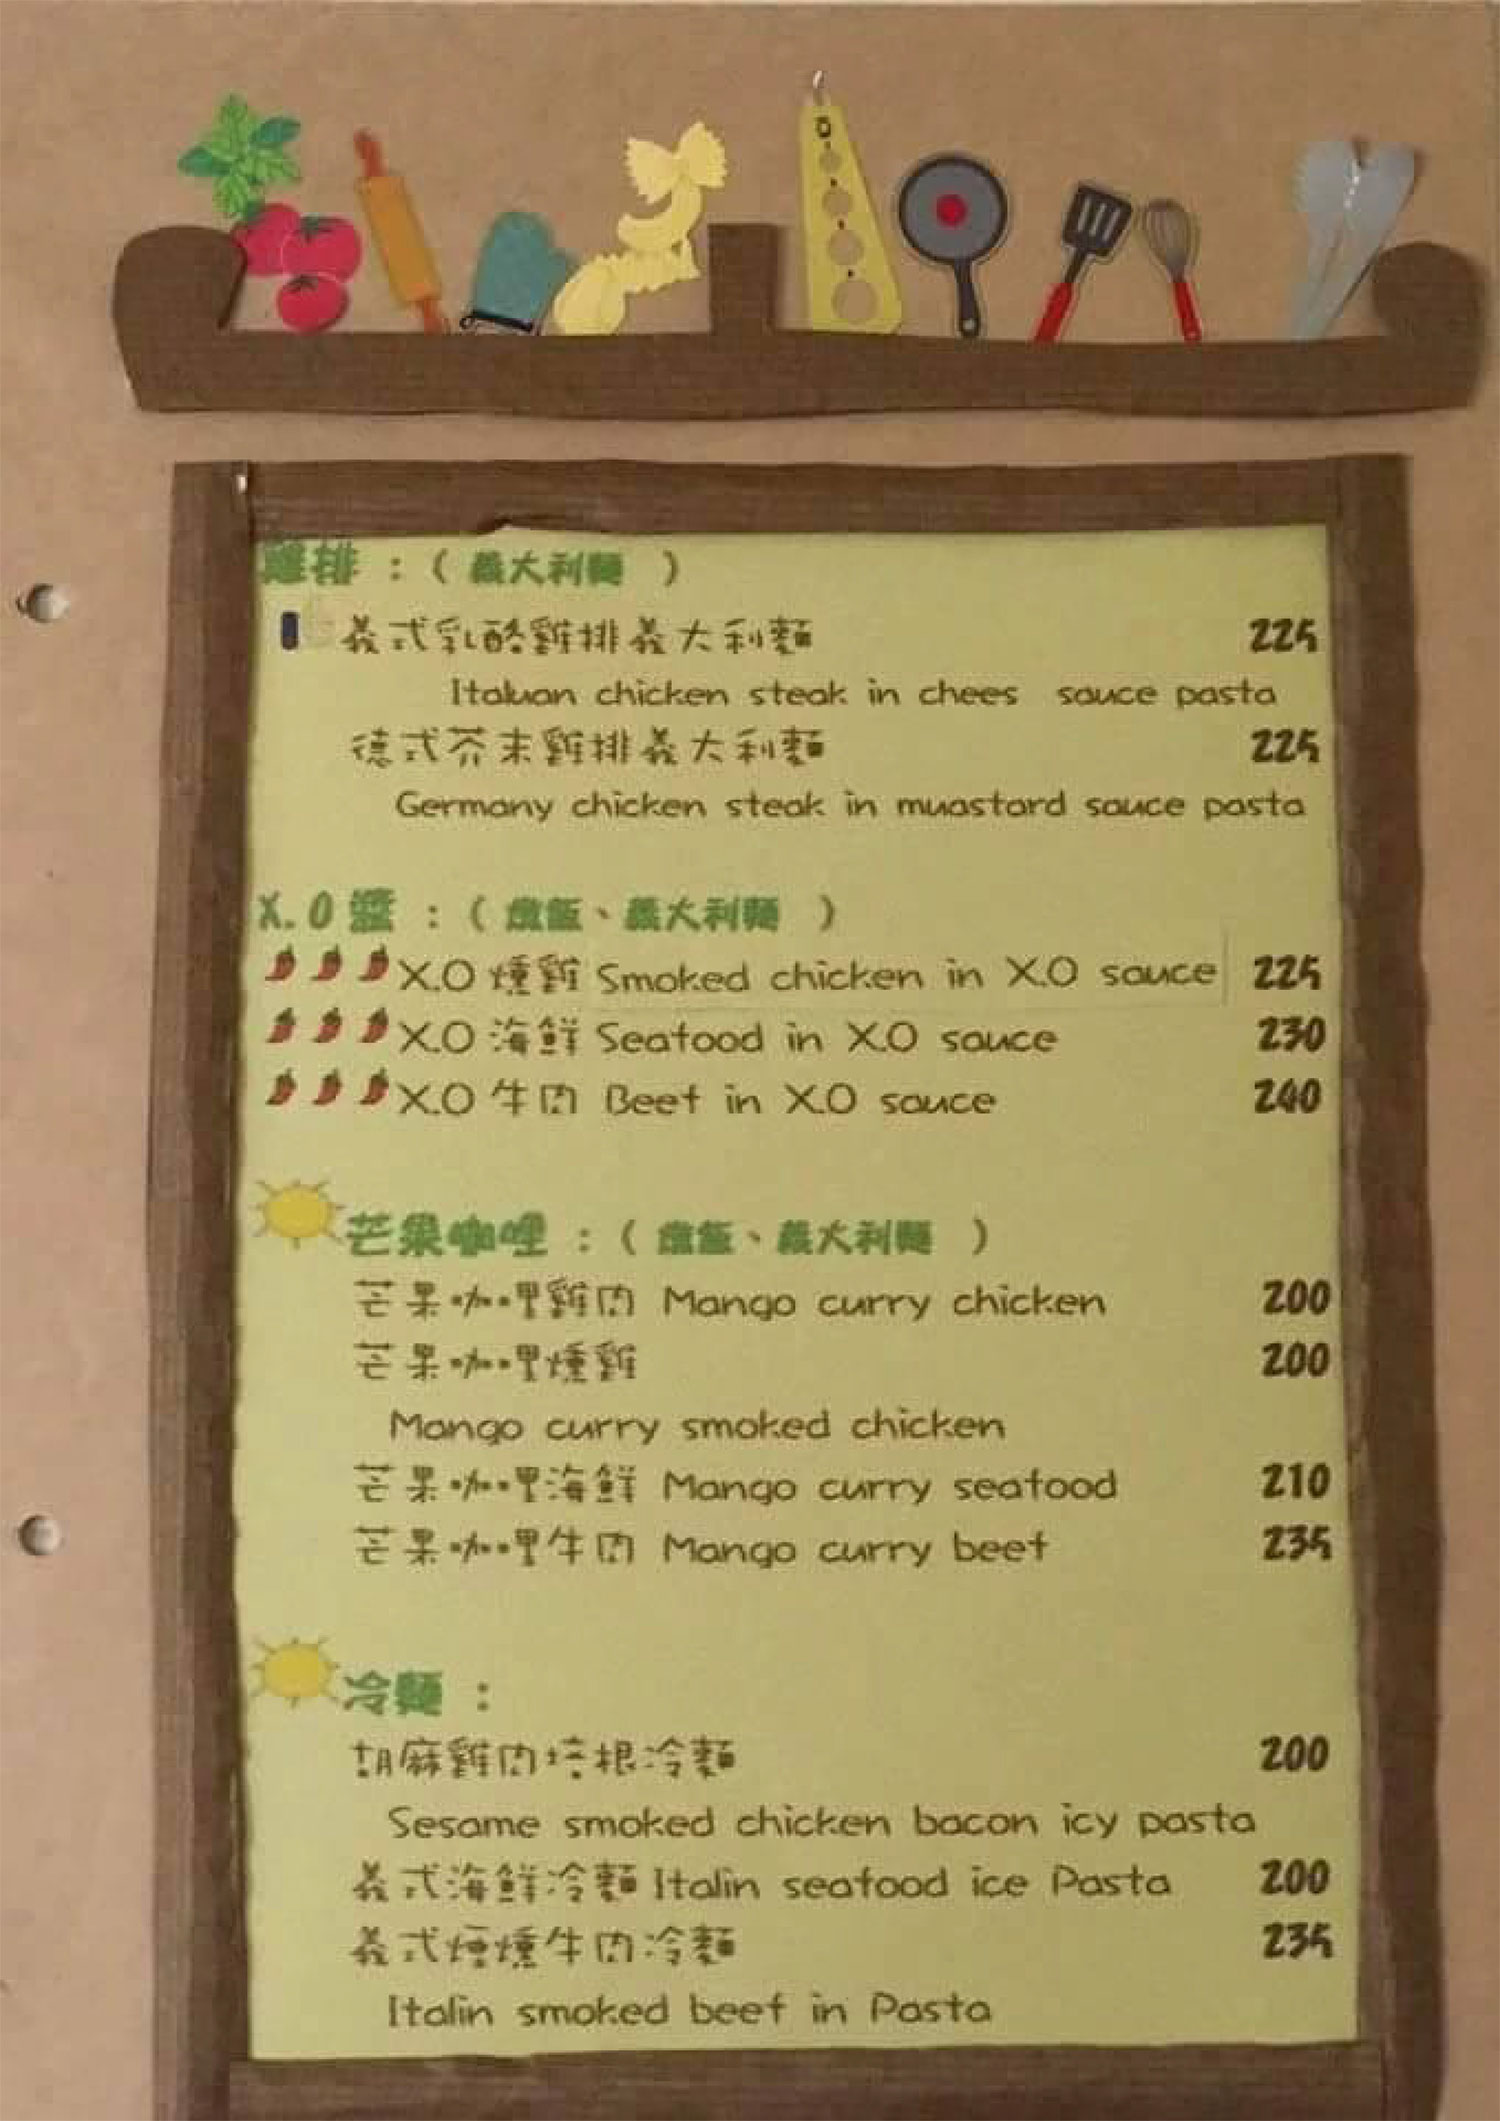 雞排：（ 義大利麵 ）
義式乳酪雞排義大利麵 225
Italuan chicken steak in chees sauce pasta
德式芥末雞排義大利麵 225
Germany chicken steak in muastard sauce pasta
X.O醬：（ 燉飯、義大利麵 ）
X.O 燻雞 Smoked chicken in X.O sauce 225
X.O 海鮮 Seafood in X.O sauce 230
X.O 牛肉 Beef in X.O sauce 240
芒果咖哩：（ 燉飯、義大利麵 ）
芒果咖哩雞肉 Mango curry chicken 200
芒果咖哩燻雞 200
Mango curry smoked chicken
芒果咖哩海鮮 Mango curry seafood 210
芒果咖哩牛肉 Mango curry beef 235
冷麵：
胡麻雞肉培根冷麵 200
Sesame smoked chicken bacon icy pasta
義式海鮮冷麵 Italin seafood ice Pasta 200
義式煙燻牛肉冷麵 235
Italin smoked beef in Pasta